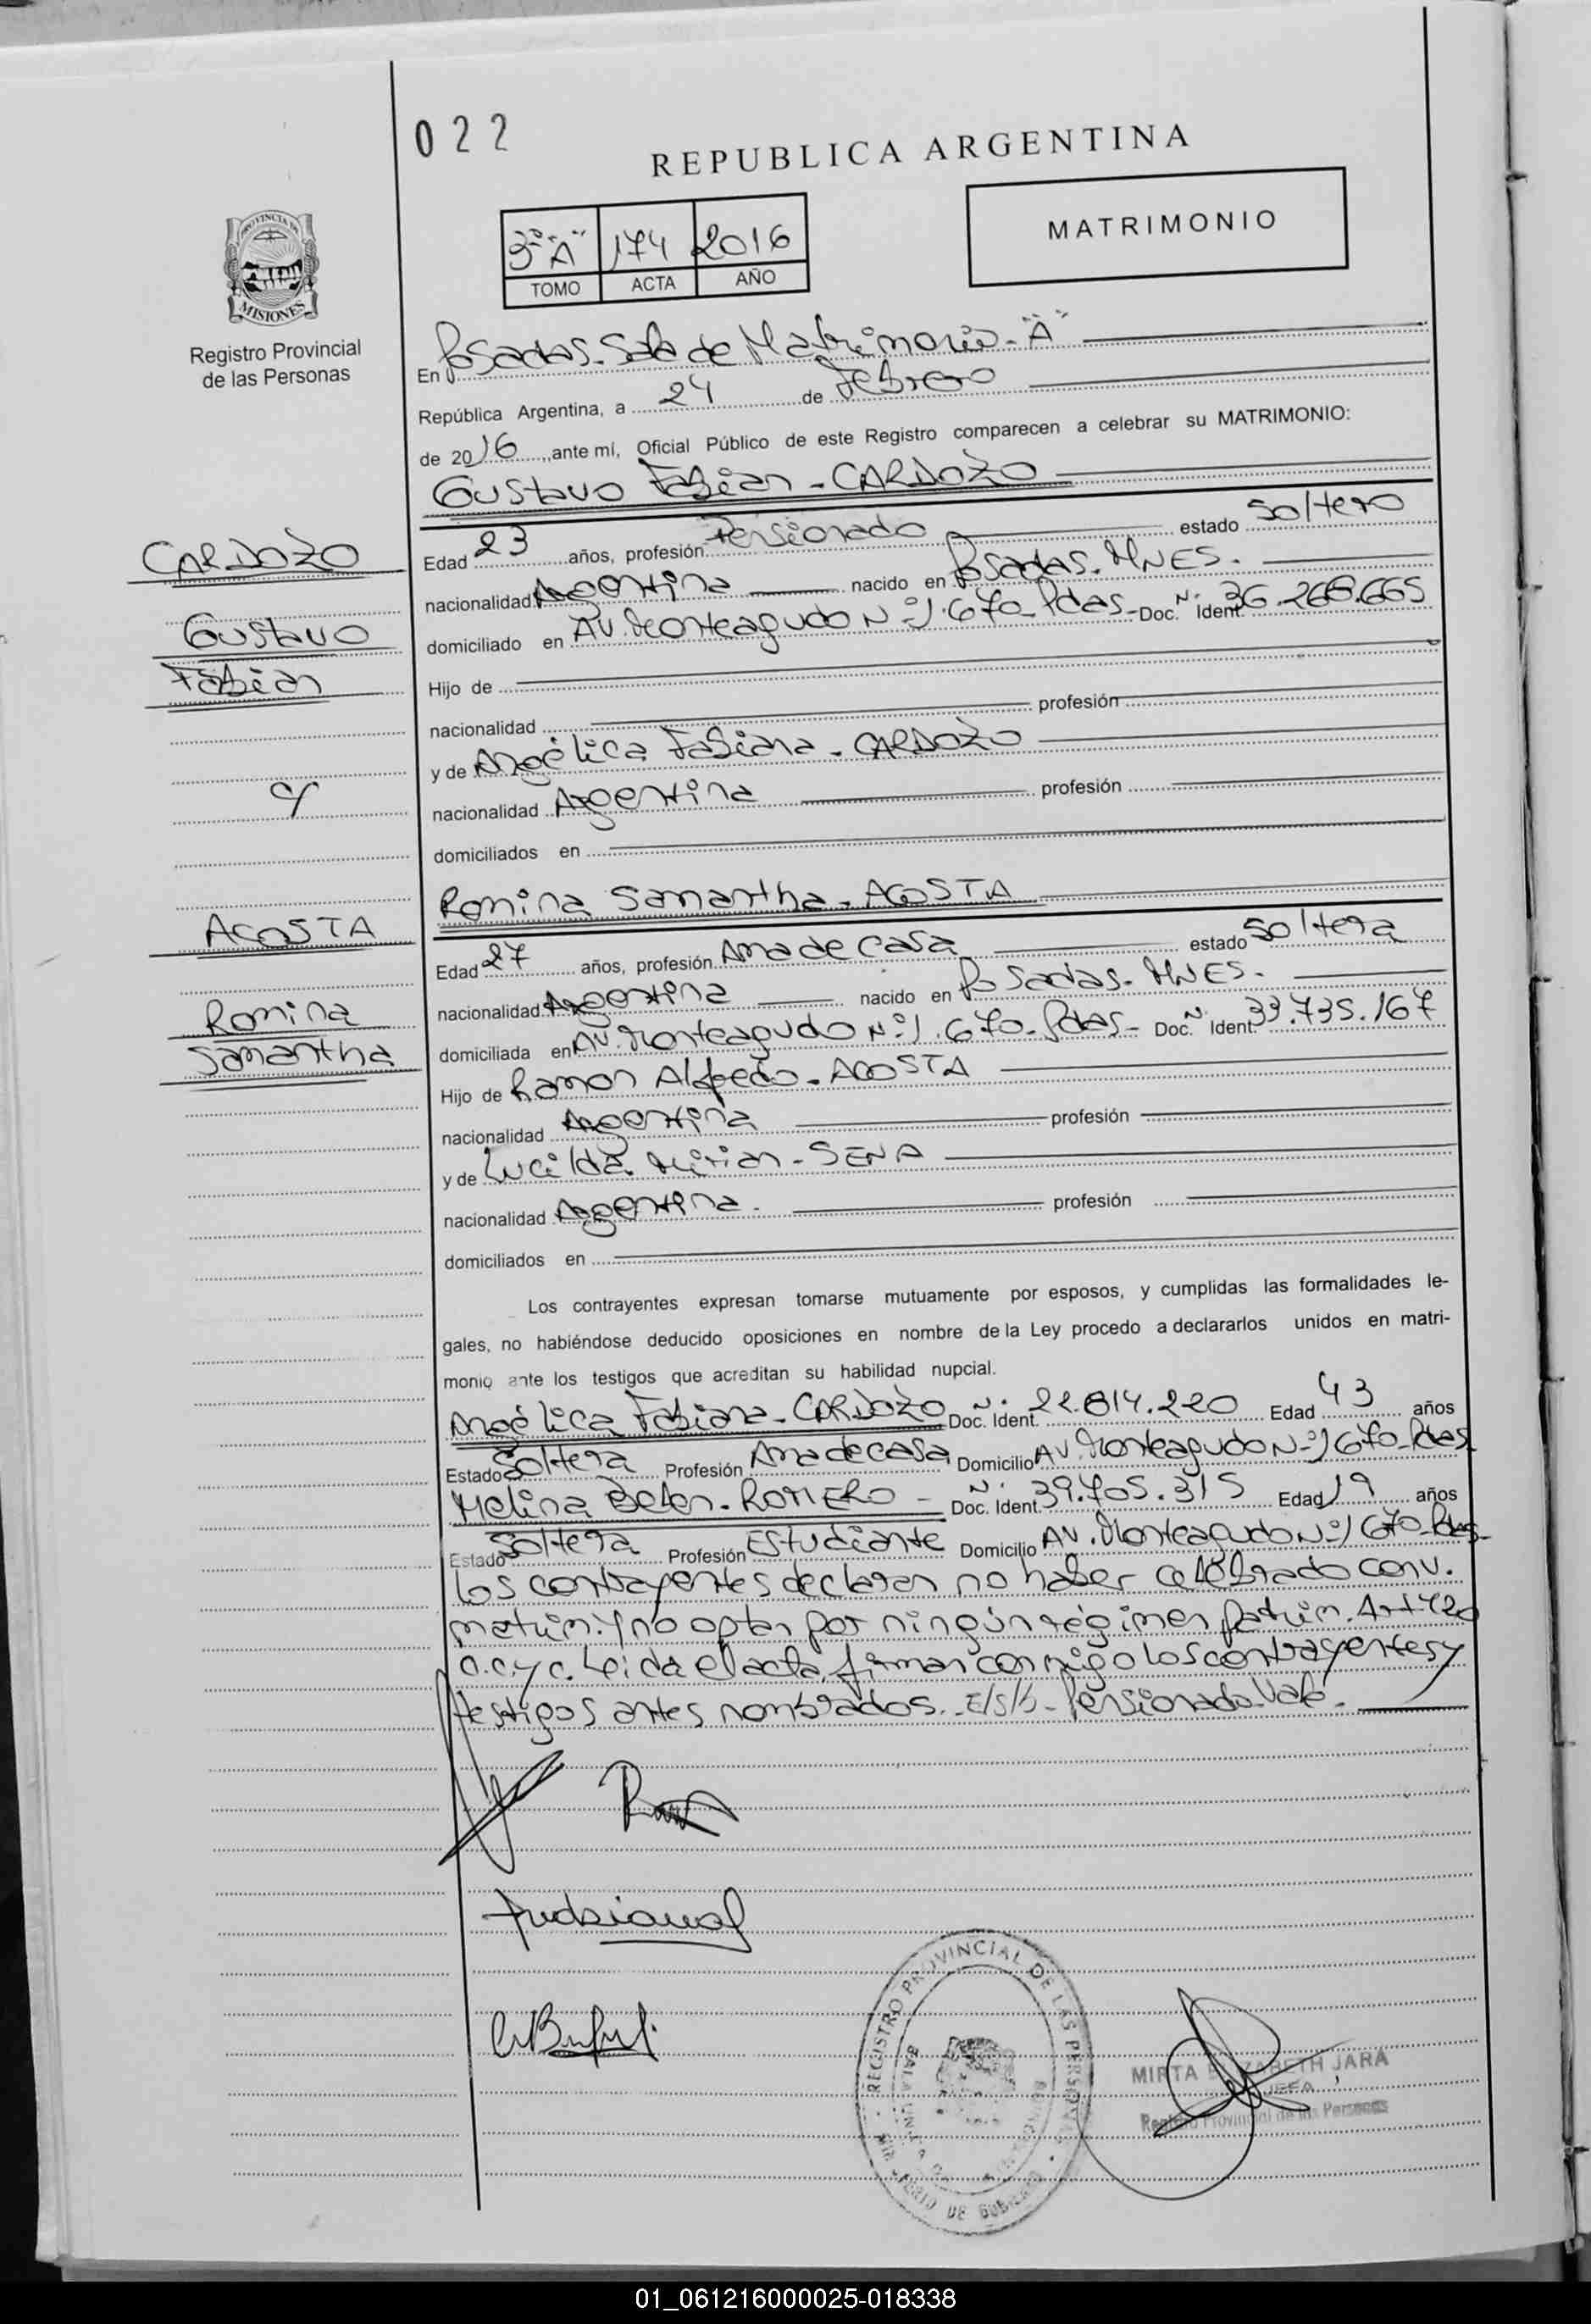 022
REPUBLICA ARGENTINA
PROVINCIA DE
MISIONES
Registro Provincial
de las Personas
3º "A" 174 2016
TOMO ACTA AÑO
MATRIMONIO
En Posadas-Sala de Matrimonio-"A"
República Argentina, a 24 de Febrero
de 2016, ante mí, Oficial Público de este Registro comparecen a celebrar su MATRIMONIO:
Gustavo Fabian - CARDOZO
CARDOZO
Gustavo
Fabian
c/
ACOSTA
Romina
Samantha
Edad 23 años, profesión Pensionado estado Soltero
nacionalidad Argentina nacido en Posadas. MNES.
domiciliado en AV. Monteagudo Nº 1.670-Pdas- Doc. N. Ident. 36.268.665
Hijo de
nacionalidad profesión
y de Angélica Fabiana - CARDOZO
nacionalidad Argentina profesión
domiciliados en
Romina Samantha - ACOSTA
Edad 27 años, profesión Ama de casa estado Soltera
nacionalidad Argentina nacido en Posadas. MNES.
domiciliada en AV. Monteagudo Nº 1.670-Pdas- Doc. N. Ident. 33.735.167
Hijo de Ramon Alfredo - ACOSTA
nacionalidad Argentina profesión
y de Lucilda Mirian - SENA
nacionalidad Argentina. profesión
domiciliados en
Los contrayentes expresan tomarse mutuamente por esposos, y cumplidas las formalidades le-
gales, no habiéndose deducido oposiciones en nombre de la Ley procedo a declararlos unidos en matri-
monio ante los testigos que acreditan su habilidad nupcial.
Angélica Fabiana - CARDOZO Doc. N. Ident. 22.814.220 Edad 43 años
Estado Soltera Profesión Ama de casa Domicilio AV. Monteagudo Nº 1670-Pdas
Melina Belen - ROMERO - Doc. N. Ident. 39.705.315 Edad 19 años
Estado Soltera Profesión Estudiante Domicilio AV. Monteagudo Nº 1670-Pdas-
Los contrayentes declaran no haber celebrado conv.
matrim. y no optan por ningún régimen patrim. Art 420
C.C.y C. Leida el acta, firman conmigo los contrayentes y
testigos antes nombrados. E/S/b - Pensionado-Vale.
REGISTRO PROVINCIAL DE LAS PERSONAS
DE GOBIERNO
MIRTA ELIZABETH JARA
JEFA
Registro Provincial de las Personas
01_061216000025-018338